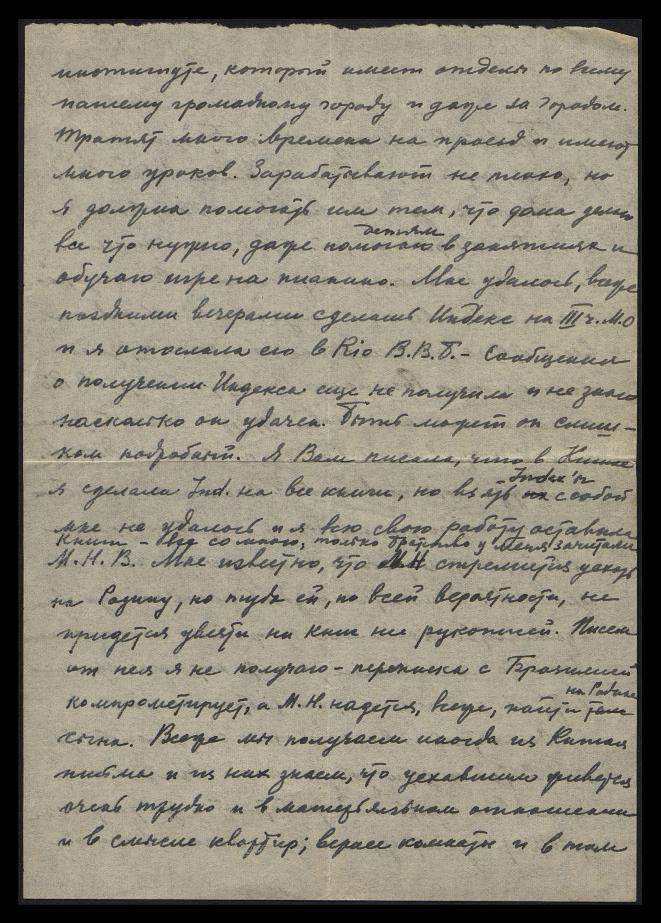 институте, который имеет отделы по всему
нашему громадному городу и даже за городом.
Тратят много времени на проезд и имеют
много уроков. Зарабатывают не плохо, но
я должна помогать им тем, что дома делаю
детям
все что нужно, даже помогаю в занятиях и
обучаю игре на пианино. Мне удалось, все же
поздними вечерами сделать Индекс на III ч. М.О
и я отослала его в Rio В.В.Б. - Сообщения
о получении Индекса еще не получила и не знаю
насколько он удачен. Быть может он слиш-
ком подробный. Я Вам писала, что в Китае
Index'ы
я сделала Ind. на все книги, но взять их с собой
мне не удалось и я всю свою работу оставила
Книги - со мною, только Братство у меня зачитали
М.Н.В. Мне известно, что М.Н стремится уехать
на Родину, но туда ей, по всей вероятности, не
придется увезти ни книг ни рукописей. Писем
от нея я не получаю - переписка с Бразилией
на Родине
компрометирует, а М.Н. надется, все же, найти там
сына. Все же мы получаем иногда из Китая
письма и из них знаем, что уехавшим живется
очень трудно и в матерьяльном отношении
и в смысле квартир; вернее комнаты и в том